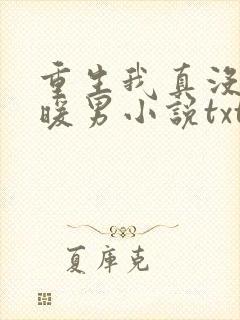 重生我真没
暖男小说txt
夏库克